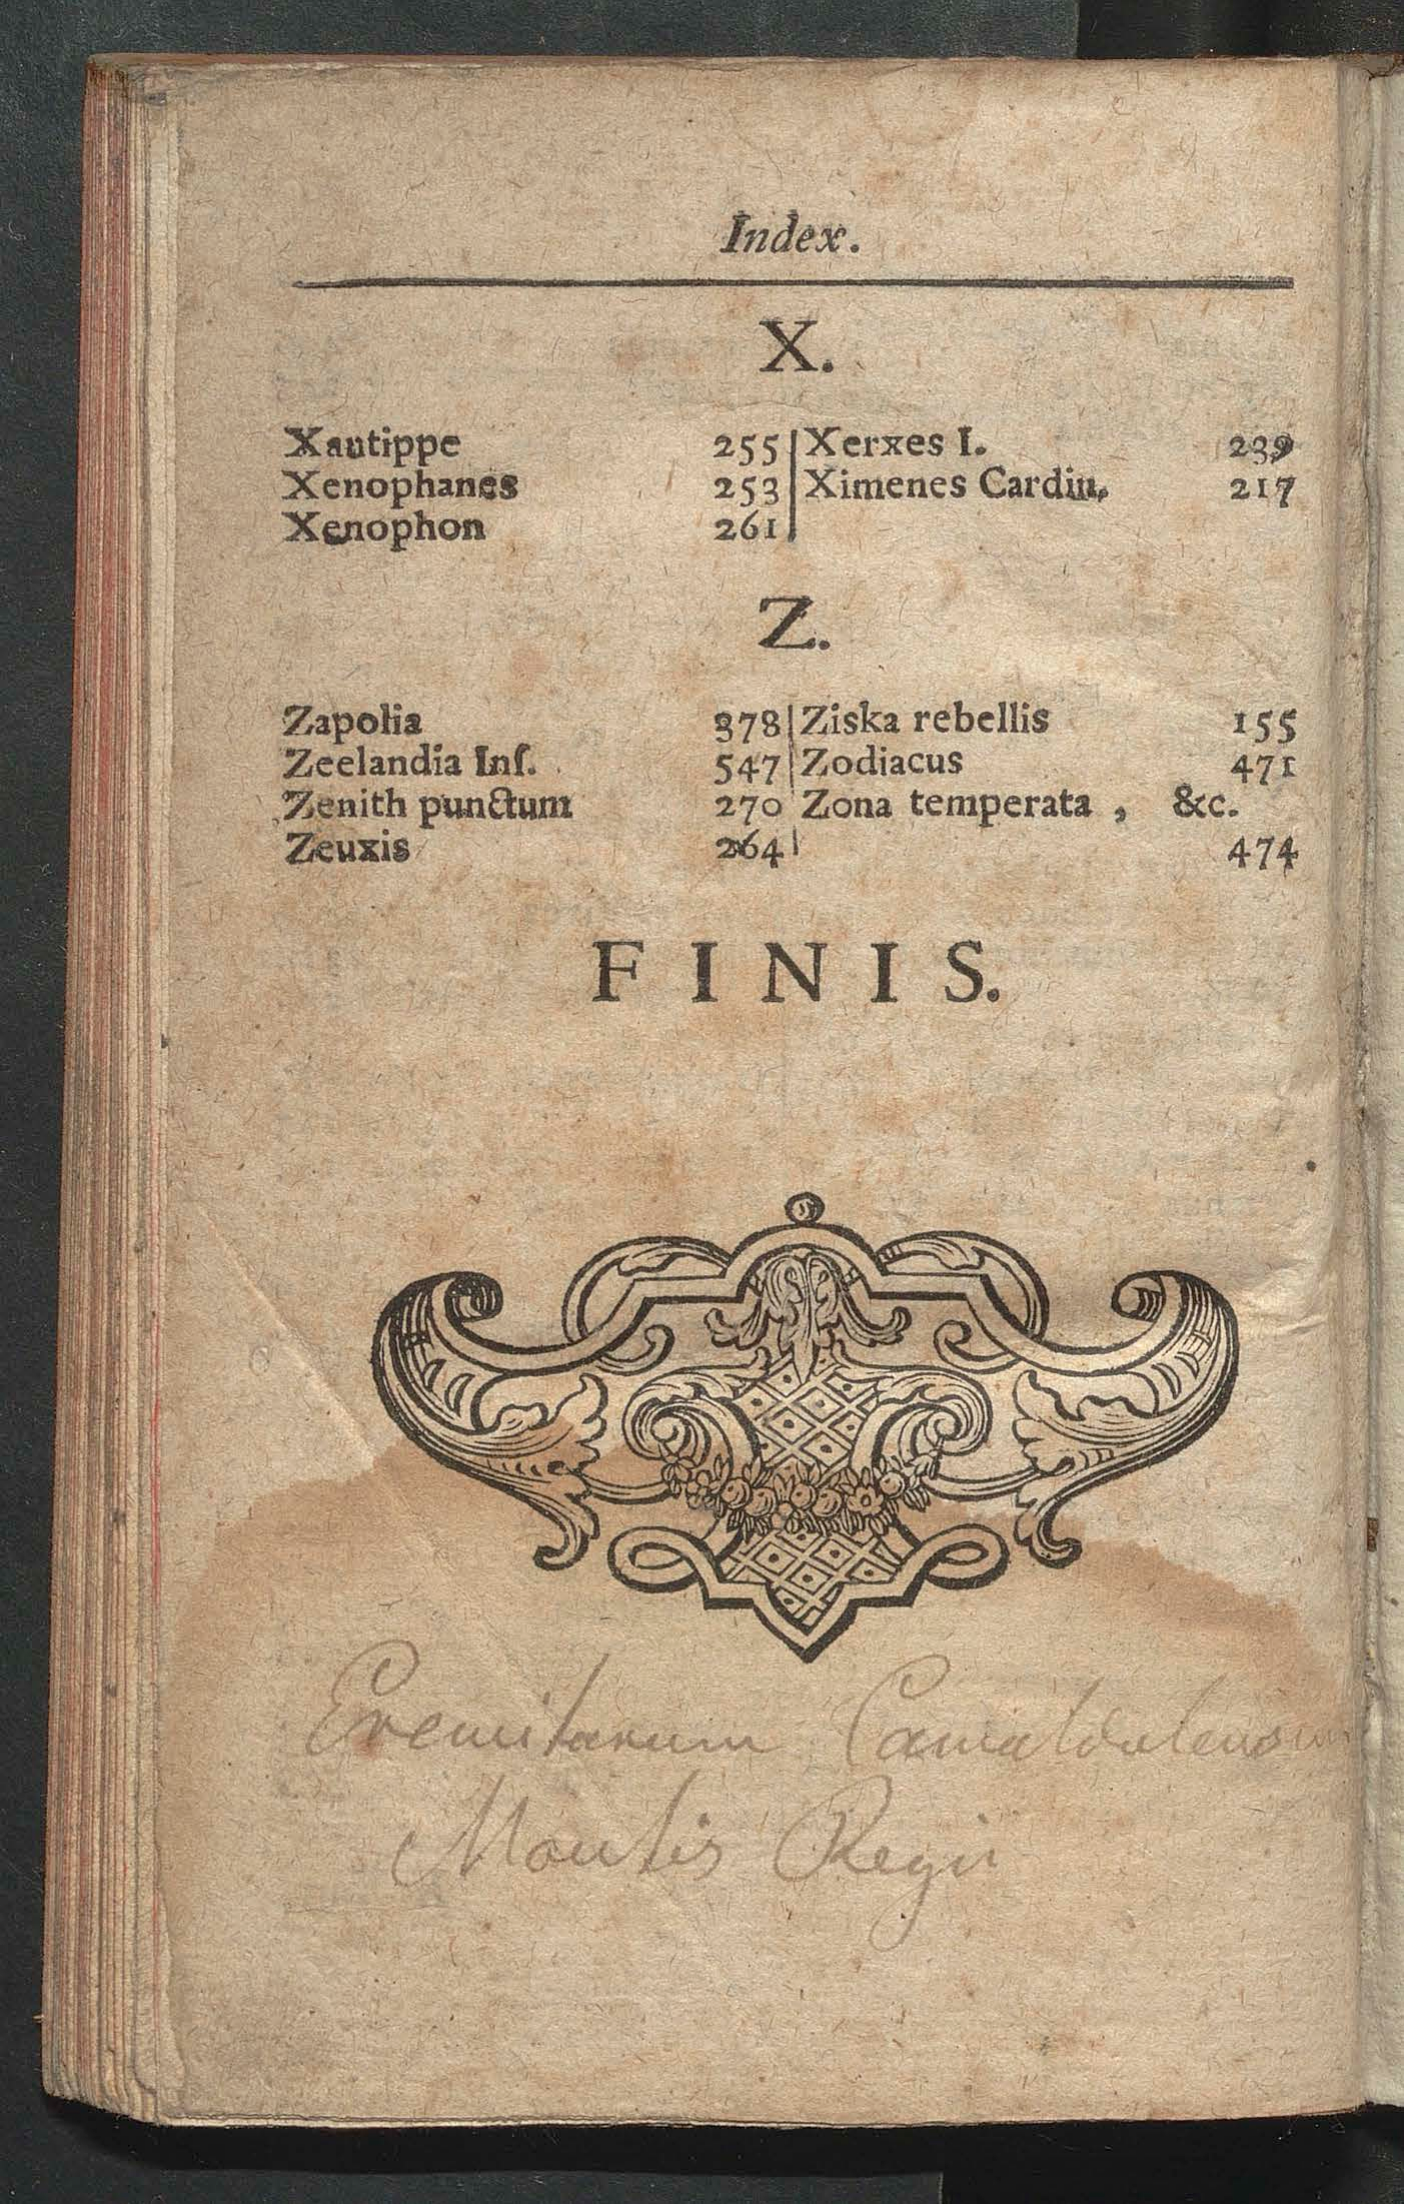 Index.
X.
Xautippe 255
Xenophanes 253
Xenophon 261
Xerxes I. 239
Ximenes Cardin. 217
Z.
Zapolia 378
Zeelandia Inſ. 547
Zenith punctum 270
Zeuxis 264
Ziska rebellis 155
Zodiacus 471
Zona temperata , &c.
474
FINIS.
Eremitarum Camaldulensium
Montis Regii